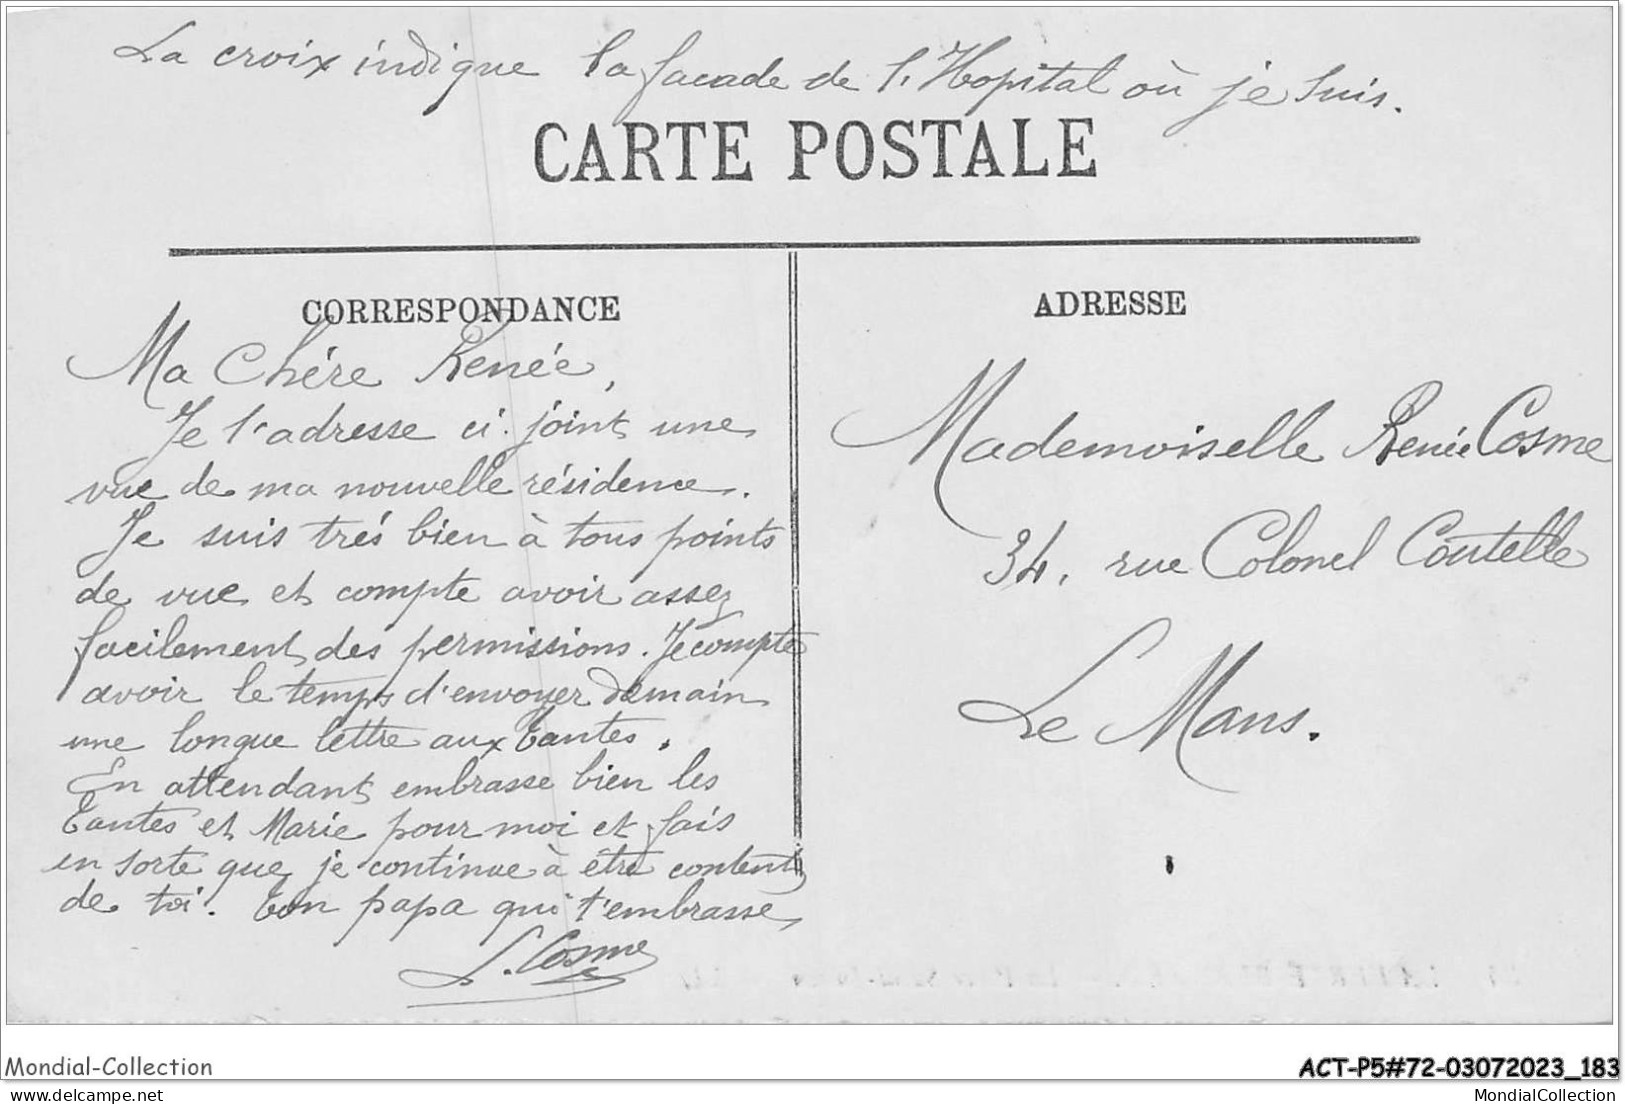 La croix indique la facade de l'Hopital où je suis.
CARTE POSTALE
CORRESPONDANCE
Ma Chére Renée,
Je t'adresse ci-joint une
vue de ma nouvelle résidence.
Je suis trés bien à tous points
de vue et compte avoir assez
facilement des permissions. Je compte
avoir le temps d'envoyer demain
une longue lettre aux tantes.
En attendant embrasse bien les
tantes et Marie pour moi et fais
en sorte que je continue à être content
de toi. Ton papa qui t'embrasse
L. Cosme
ADRESSE
Mademoiselle Renée Cosme
34, rue Colonel Coutelle
Le Mans.
Mondial-Collection
ACT-P5#72-03072023_183
MondialCollection
MondialCollection